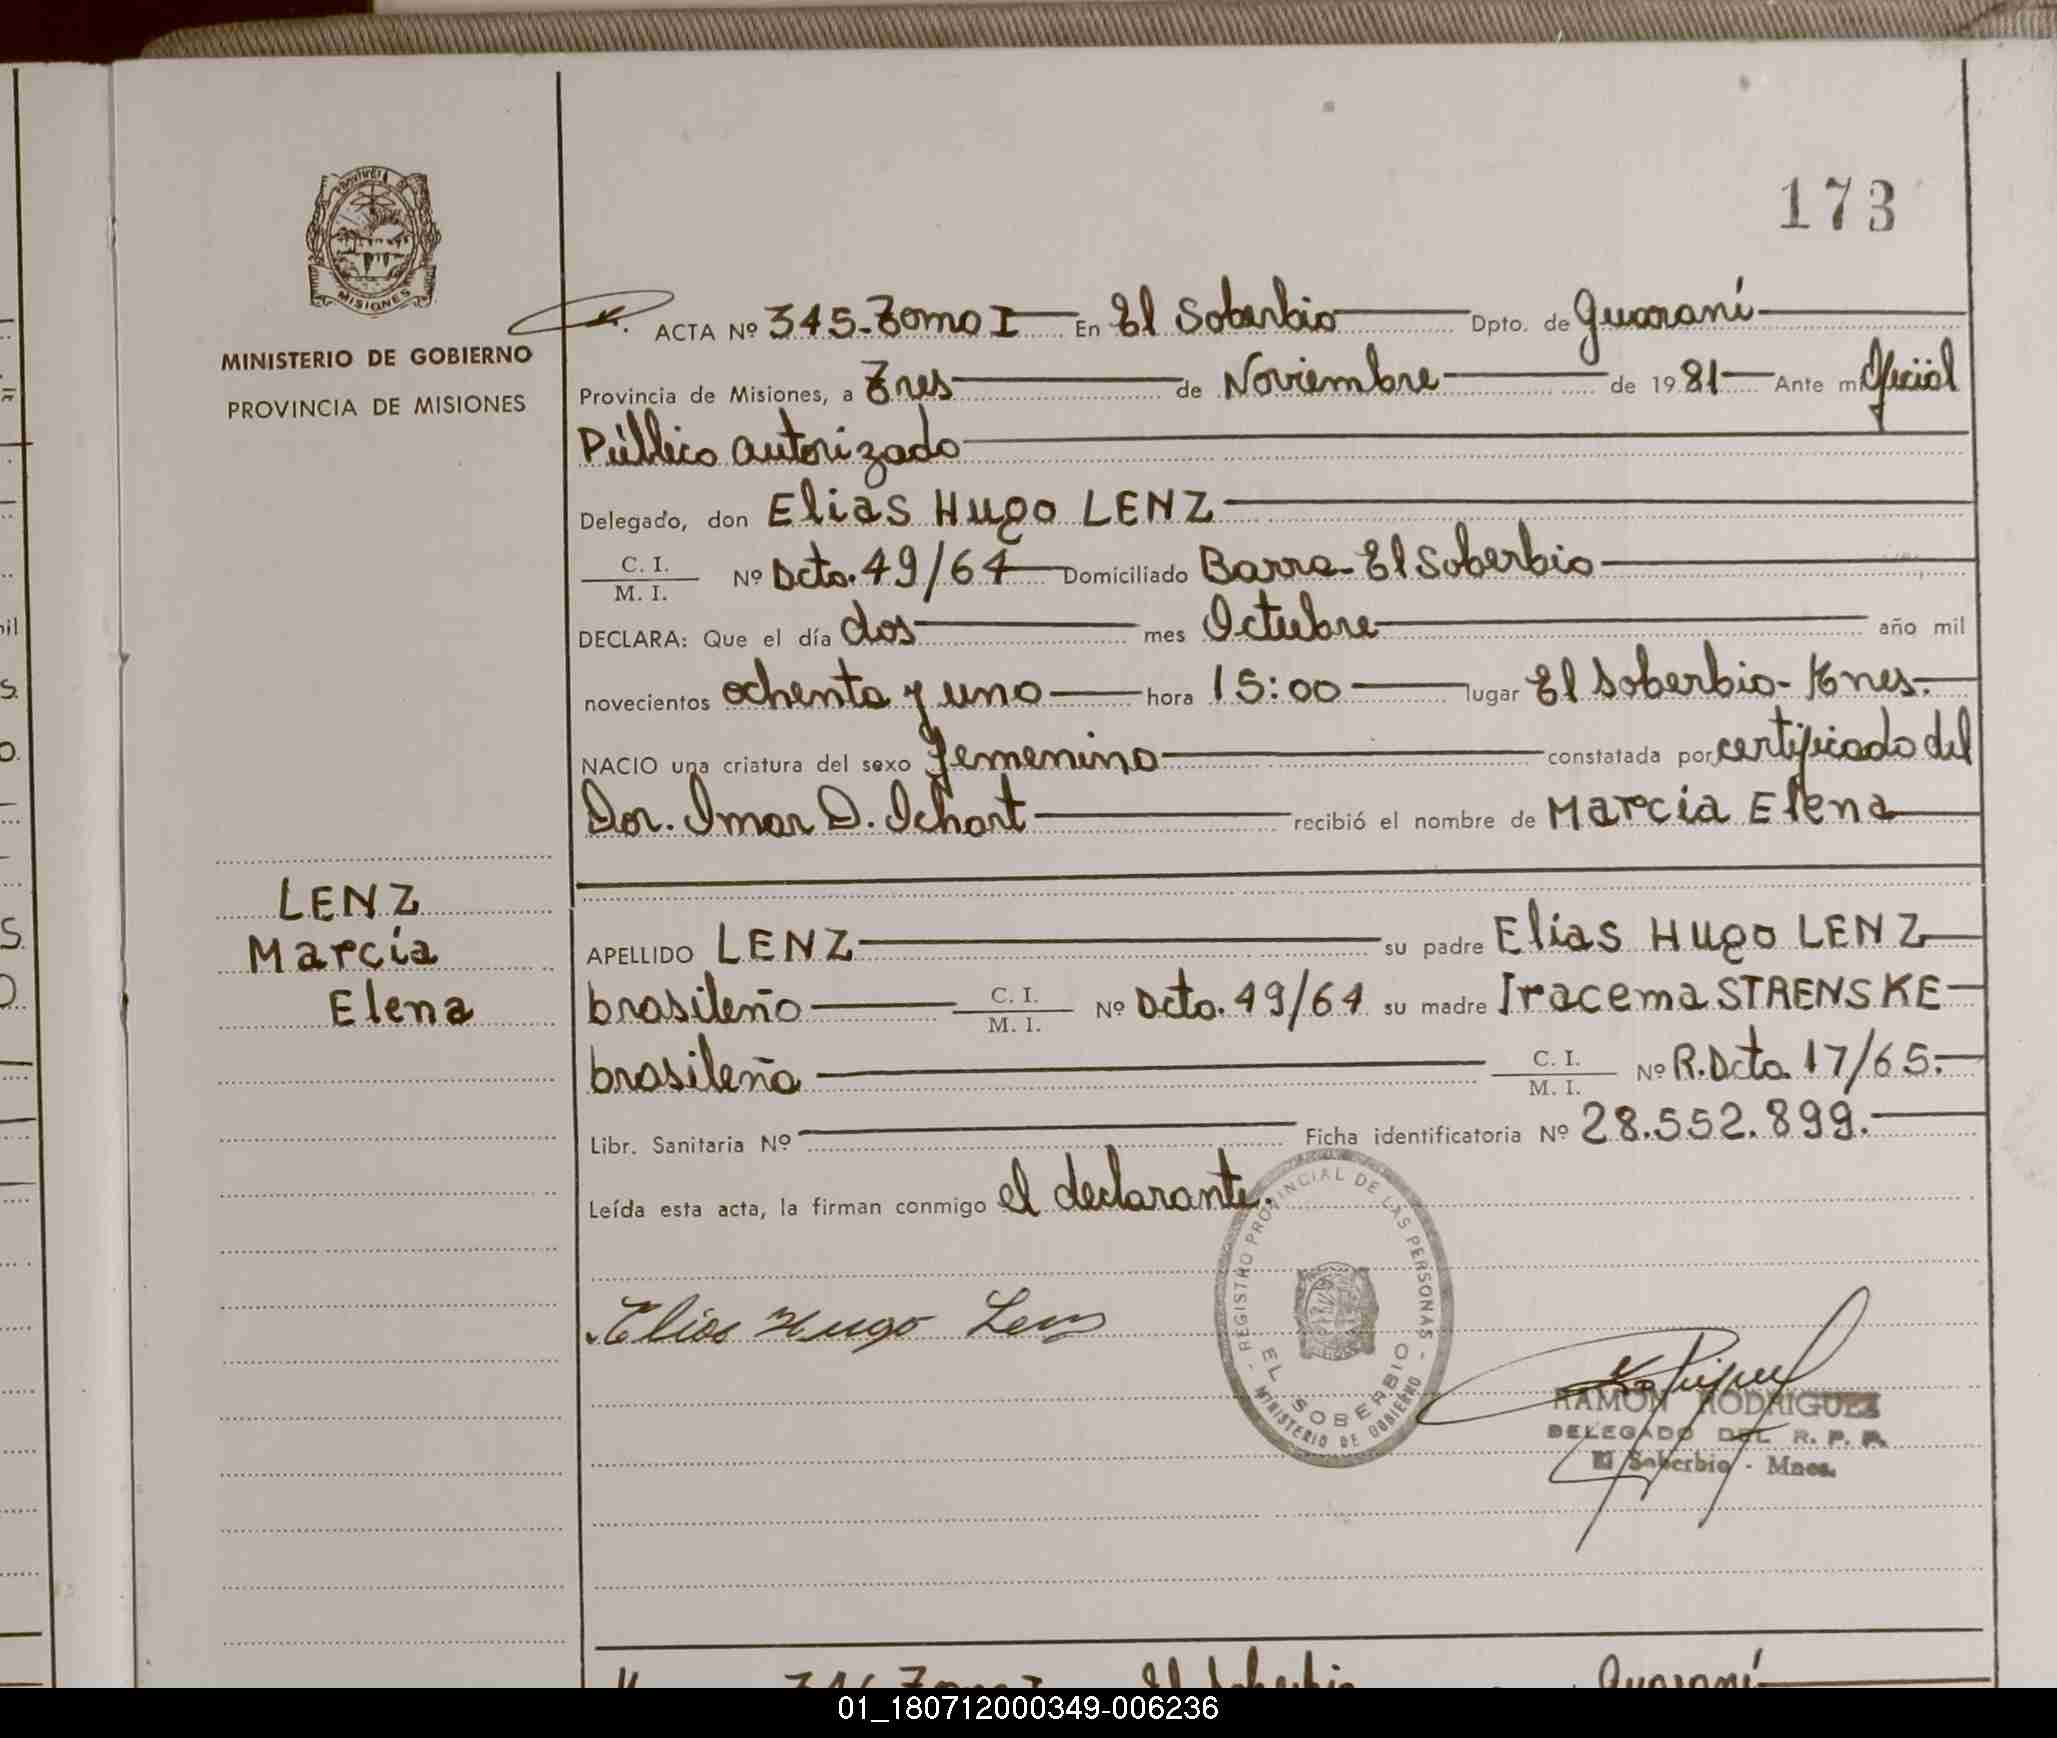 173
MISIONES
MINISTERIO DE GOBIERNO
PROVINCIA DE MISIONES
ACTA Nº 345-Tomo I En El Soberbio Dpto. de Guaraní
Provincia de Misiones, a Tres de Noviembre de 1981 Ante mi Oficial
Público autorizado
Delegado, don Elias Hugo LENZ
C. I.
M. I. Nº Dcto. 49/64 Domiciliado Barra-El Soberbio
DECLARA: Que el día dos mes Octubre año mil
novecientos ochenta y uno hora 15:00 lugar El Soberbio-
NACIO una criatura del sexo femenino constatada por certificado del
Dor. Omar D. Ichart recibió el nombre de Marcia Elena
LENZ
Marcia
Elena
APELLIDO LENZ su padre Elias Hugo LENZ
brasileño C. I.
M. I. Nº Dcto. 49/64 su madre Iracema STRENSKE
brasileña C. I.
M. I. Nº R.Dcto. 17/65.
Libr. Sanitaria Nº Ficha identificatoria Nº 28.552.899.
Leída esta acta, la firman conmigo el declarante.
Elias Hugo Lenz
- REGISTRO PROVINCIAL DE LAS PERSONAS -
EL SOBERBIO
MINISTERIO DE GOBIERNO
RAMON RODRIGUEZ
DELEGADO DEL R. P. P.
El Soberbio - Mnes.
346 Tomo I El Soberbio Guaraní
01_180712000349-006236